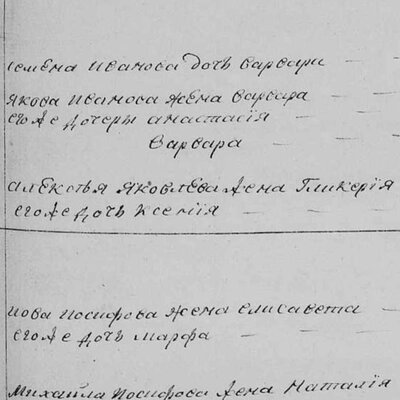 семена иванова дочь варвары
якова иванова жена варвара
его же дочеры анастасія
варвара
алексѣя яковлева жена гликерія
его же дочь ксенія
иова иосифова жена елисавета
его же дочь марфа
михаила иосифова жена наталія